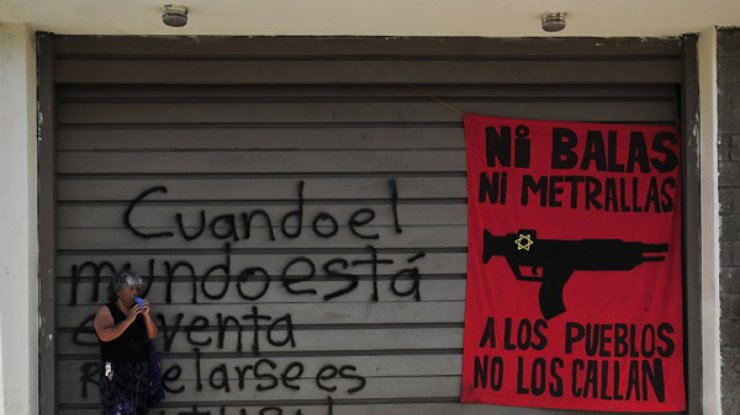 Cuando el
mundo está
venta
relarse es
NI BALAS
NI METRALLAS
A LOS PUEBLOS
NO LOS CALLAN